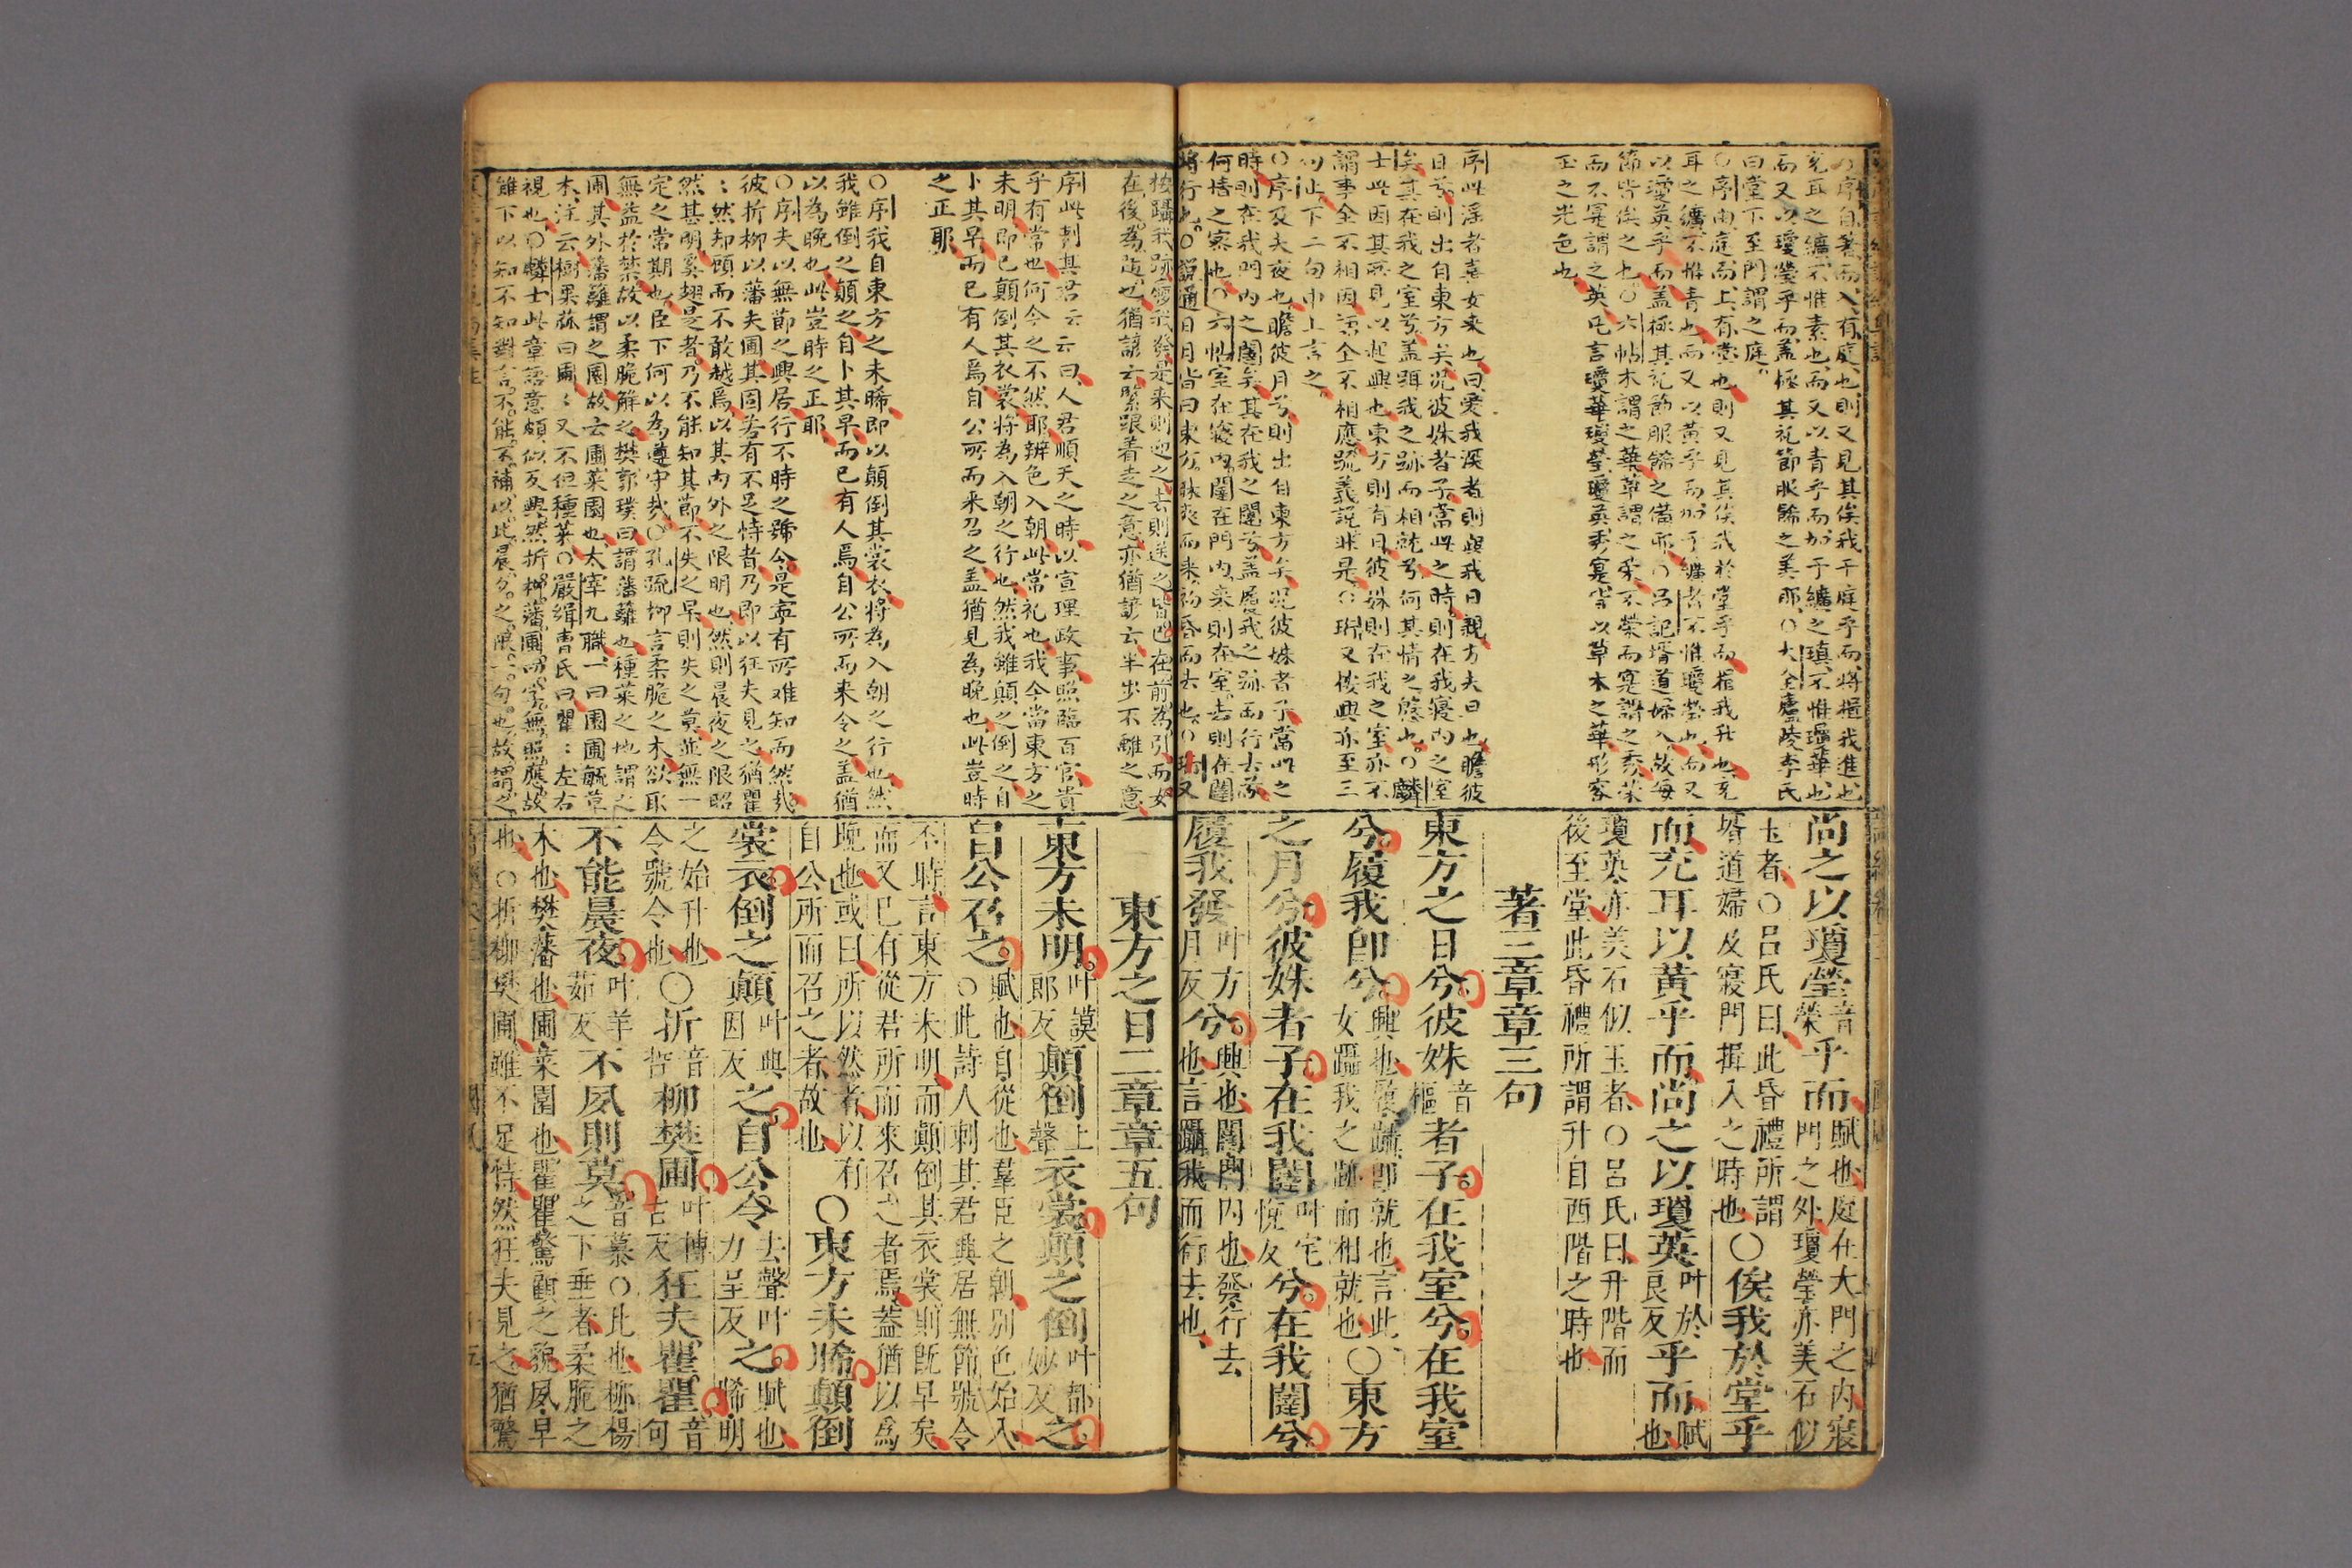 ○序自著而入有庭也則又見其俟我于庭乎而將揖我進也
充耳之纊不惟素也而又以青乎而加于纊之瑱不惟瓊華也
而又以瓊瑩乎而盖極其礼節服飾之美耶○大全廬陵李氏
曰堂下至門謂之庭
○序由庭而上有堂也則又見其俟我於堂乎而揖我升也充
耳之纊不惟青也而又以黃乎而加于纊者不惟瓊瑩也而又
以瓊英乎而盖極其礼節服飾之備耶○呂記壻道婦入故每
節皆俟之也○六帖木謂之華草謂之荣不榮而実謂之秀荣
而不実謂之英凡言瓊華瓊瑩瓊英秀実皆以草木之華形容
玉之光色也
序此淫者喜女来也曰爱我深者則與我日親方夫日也瞻彼
日兮則出自東方矣况彼姝者子當此之時則在我寝内之室
矣其在我之室兮盖躡我之跡而相就兮何其情之慇也○麟
士此因其所見以起興也東方則有日彼姝則在我之室亦不
謂事全不相因語全不相應疏義説非是○琨又按興亦至三
句止下二句申上言之
○序及夫夜也瞻彼月兮則出自東方矣况彼姝者子當此之
時則在我門内之闥矣其在我之闥兮盖履我之跡而行去兮
何情之密也○六帖室在寝内闥在門内来則在室去則在闥
將行也○説通日月皆曰東方昧爽而来初昏而去也○琨又
尚之以瓊瑩音榮乎而賦也庭在大門之内寢門之外瓊瑩亦美石似
玉者○呂氏曰此昏禮所謂壻道婦及寢門揖入之時也○俟我於堂乎
而充耳以黃乎而尚之以瓊英叶於良反乎而賦也
瓊英亦美石似玉者○呂氏曰升階而
後至堂此昏禮所謂升自西階之時也
著三章章三句
東方之日兮彼姝音樞者子在我室兮在我室
兮履我即兮興也履躡即就也言此女躡我之跡而相就也○東方
之月兮彼姝者子在我闥叶宅悅反兮在我闥兮
履我發叶方月反兮興也闥門内也發行去也言躡我而行去也
按躡我跡即我發是来則迎之去則送之皆已在前為引而女
在後為随也猶諺云緊跟着走之意亦猶諺云半步不離之意
序此刺其君云云曰人君順天之時以宣理政事照臨百官貴
乎有常也何今之不然耶辨色入朝此常礼也我今當東方之
未明即已顛倒其衣裳將為入朝之行也然我雖顛之倒之自
卜其早而已有人焉自公所而来召之盖猶見為晚也此豈時
之正耶
○序我自東方之未晞即以顛倒其裳衣將為入朝之行也然
我雖倒之顛之自卜其早而已有人焉自公所而来令之盖猶
以為晚也此豈時之正耶
○序夫以無節之興居行不時之號令是寧有所难知而然哉
彼折柳以藩夫圃其固若有不足恃者乃即以狂夫見之猶瞿
：然却顧而不敢越焉以其内外之限明也然則晨夜之限昭
然甚明奚翅是者乃不能知其節不失之早則失之莫並無一
定之常期也臣下何以為遵守哉○孔疏柳言柔脆之木欲取
無益於禁故以柔脆解之樊郭璞曰謂藩籬也種菜之地謂之
圃其外藩籬謂之園故云圃菜園也太宰九職一曰園圃毓草
木注云樹果蓏曰圃：又不但種菜○嚴緝曹氏曰瞿：左右
視也○麟士此章語意頗似反興然折柳藩圃而字無照應故
雖下以知不知對言不能不補以比晨夕之限一句也故謂之
東方之日二章章五句
東方未明叶謨郎反顛倒上聲衣裳顛之倒叶都妙反之
自公召之賦也自從也羣臣之朝别色始入○此詩人刺其君興居無節號令
不時言東方未明而顛倒其衣裳則旣早矣
而又已有從君所而來召之者焉蓋猶以爲
晚也或曰所以然者以有自公所而召之者故也○東方未晞顛倒
裳衣倒之顛叶典因反之自公令去聲叶力呈反之賦也晞明
之始升也令號令也○折音哲柳樊圃叶博古反狂夫瞿瞿音句
不能晨夜叶羊茹反不夙則莫音慕○比也柳楊之下垂者柔脆之
木也樊藩也圃菜園也瞿瞿驚顧之貌夙早
也○折柳樊圃雖不足恃然狂夫見之猶驚